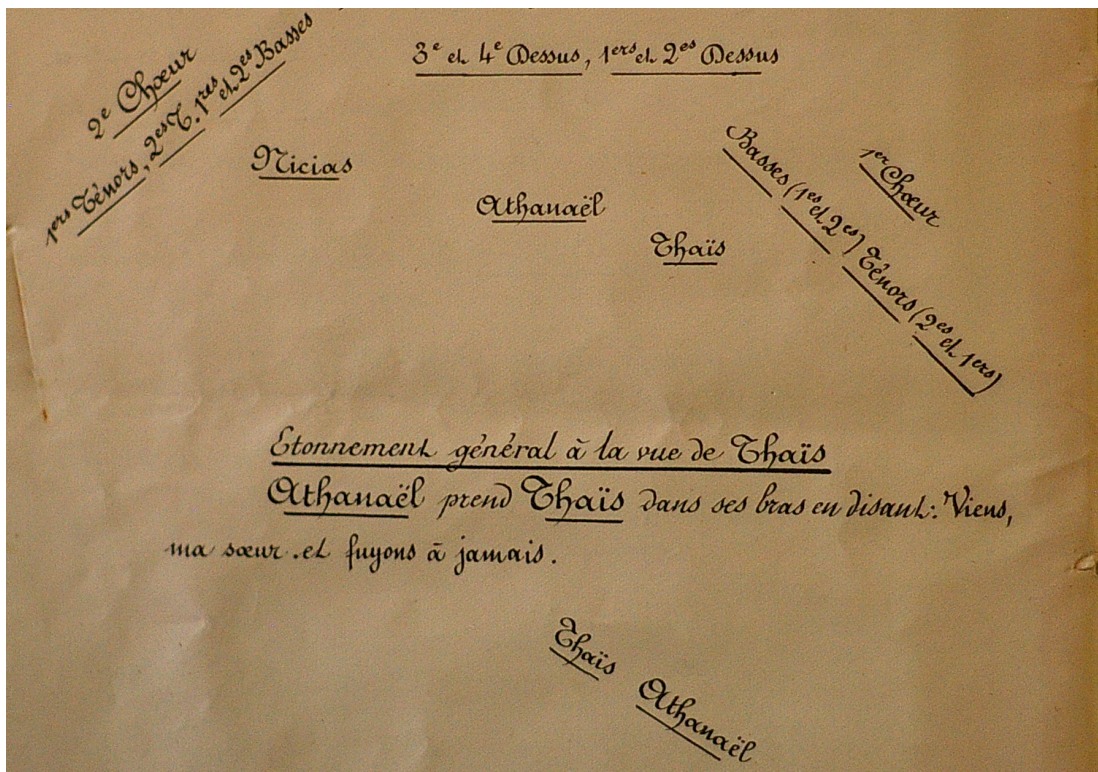 3e et 4e Dessus, 1ers et 2es Dessus
2e Chœur
1ers Ténors, 2es T. 1res et 2es Basses
Nicias
Athanaël
Thaïs
1er Chœur
Basses (1es et 2es) Ténors (2es et 1ers)
Etonnement général à la vue de Thaïs
Athanaël prend Thaïs dans ses bras en disant: Viens,
ma sœur. et fuyons à jamais.
Thaïs
Athanaël